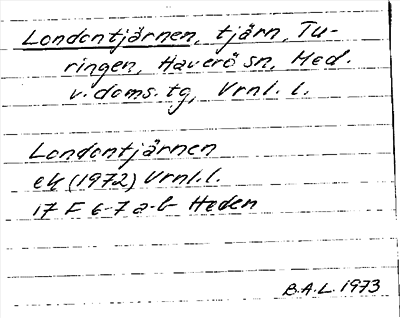 Londontjärnen, tjärn, Tu-
ringen, Haverö sn, Med.
v. doms. tg, Vrnl. l.
Londontjärnen
ek (1972) Vrnl. l.
17 F 6-7 a-b Heden
B.A.L. 1973